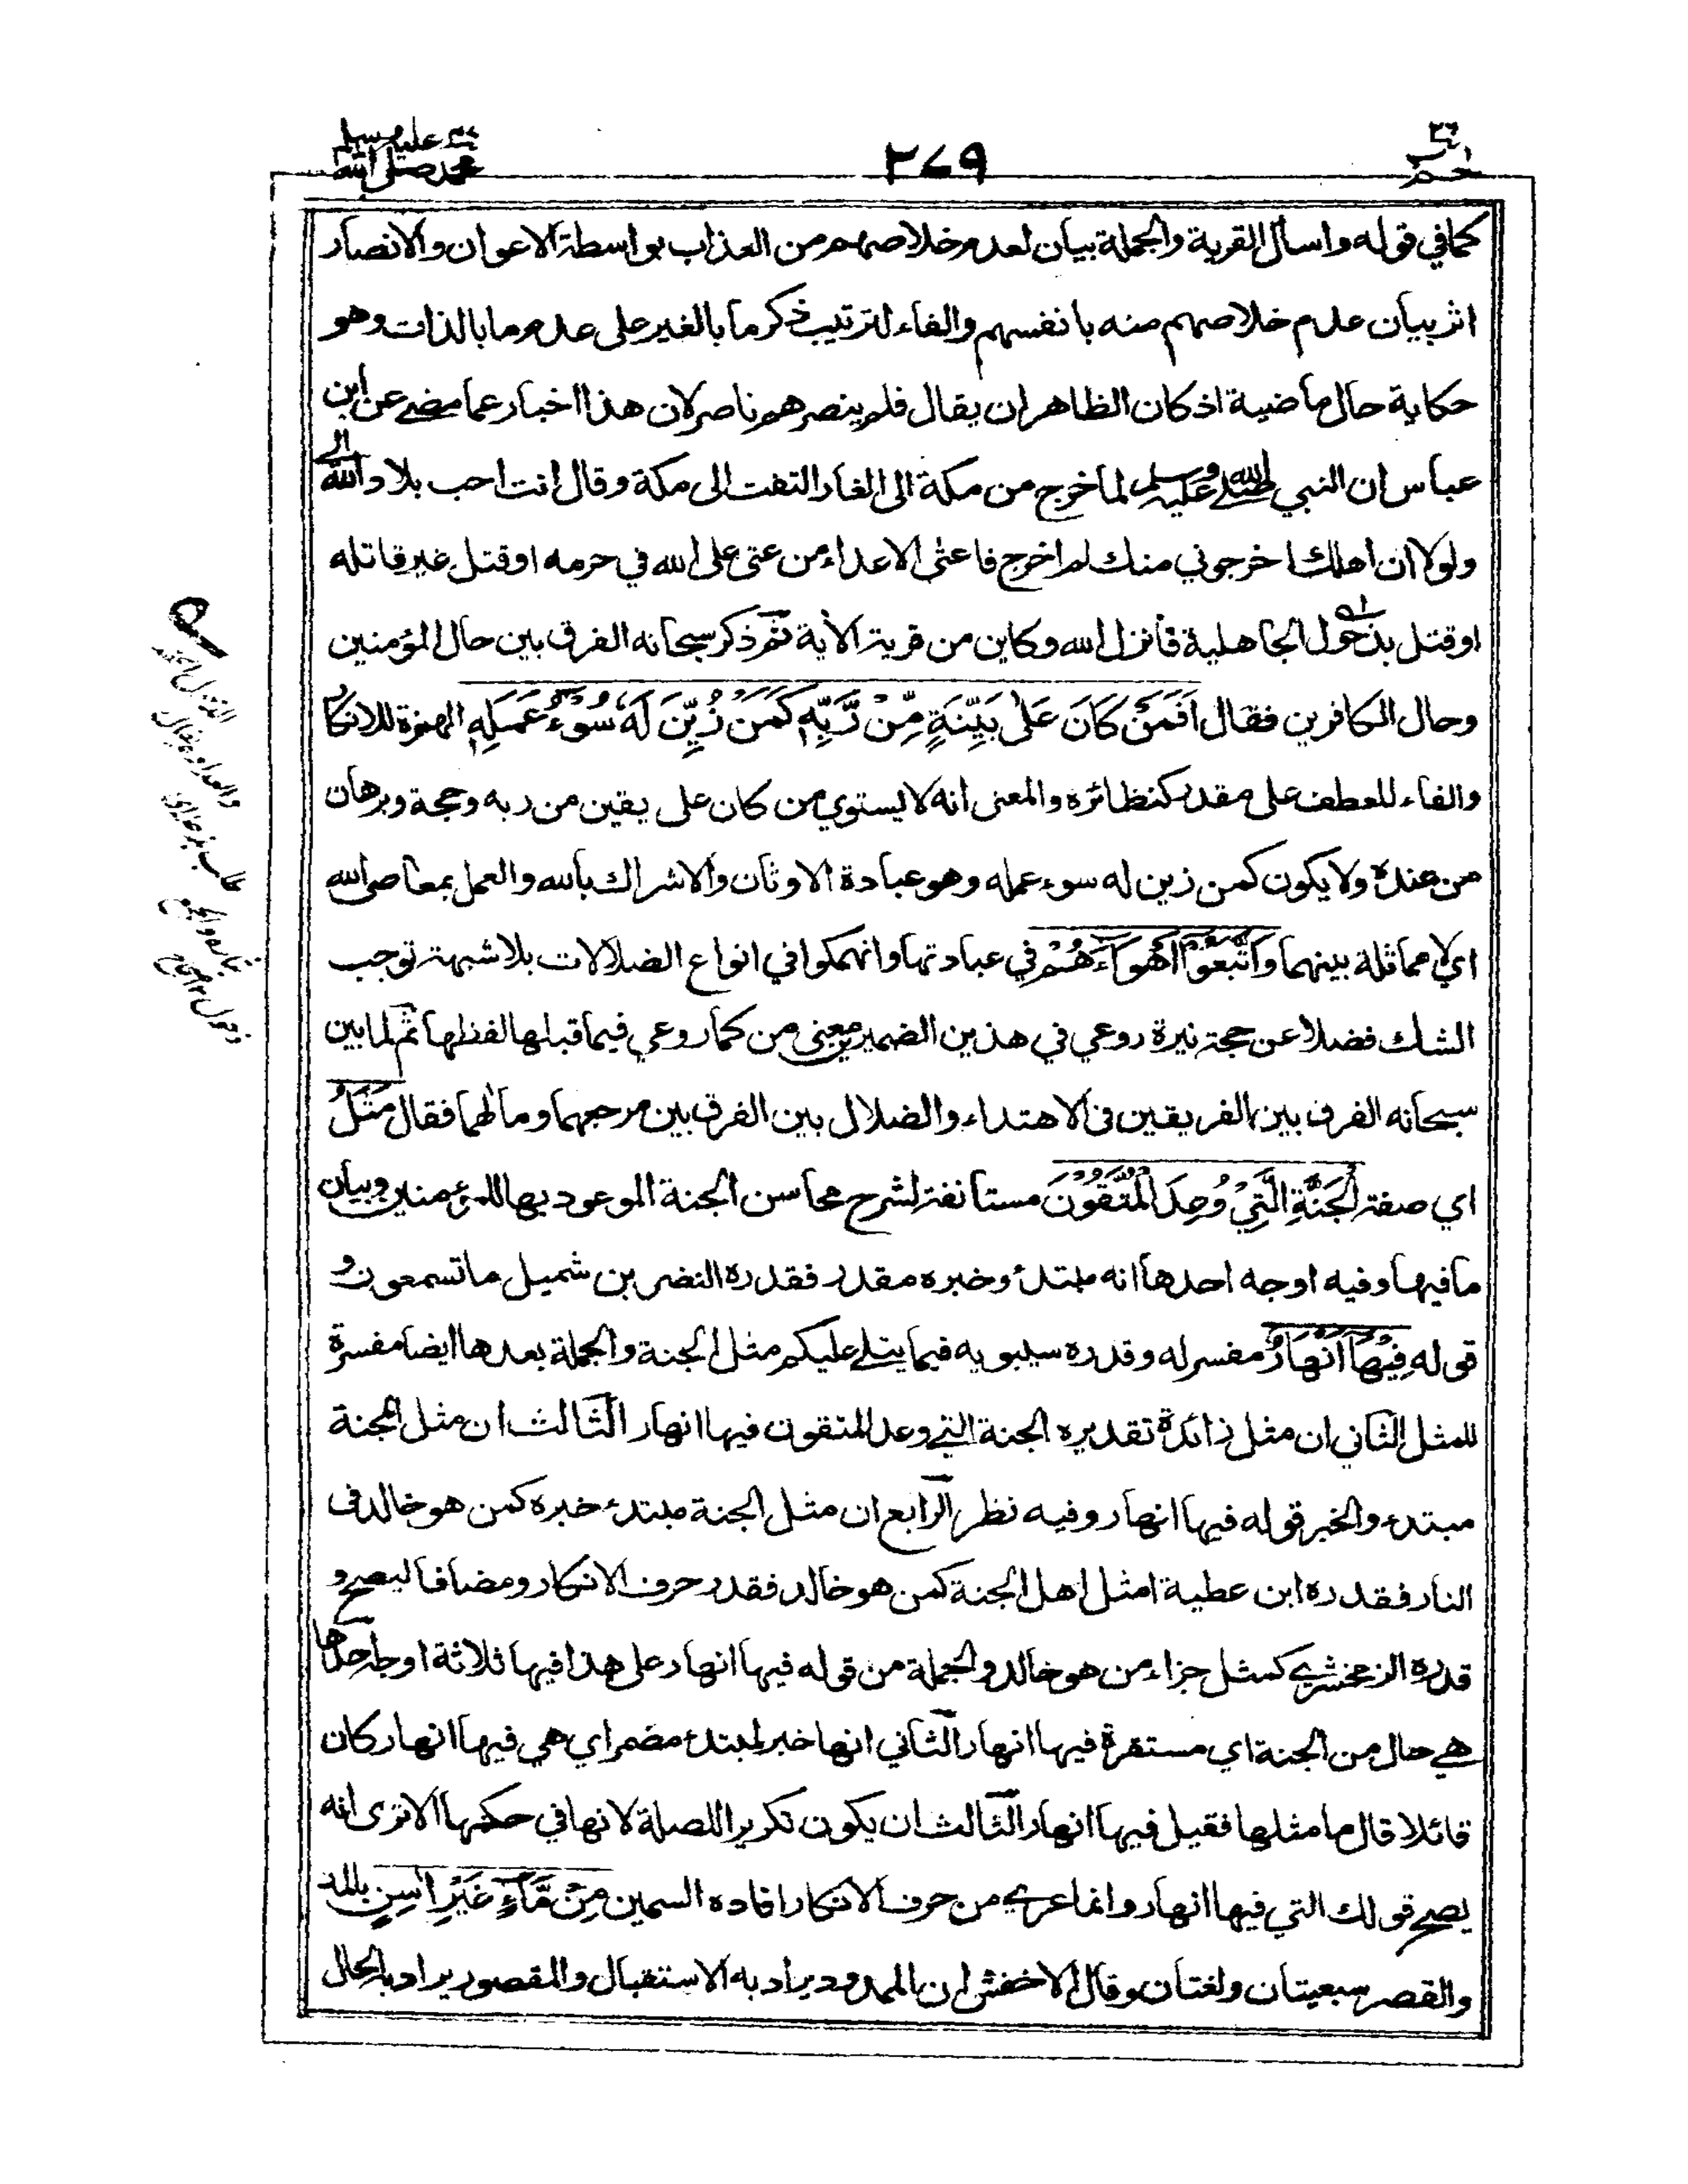 حم ٢٦
٢٧٩
محمد صلى الله عليه وسلم
كما في قوله واسأل القرية والجملة بيان لعدم خلاصهم من العذاب بواسطة الاعوان والانصار
اثر بيان عدم خلاصهم منه بانفسهم والفاء لترتيب ذكر ما بالغير على عدم ما بالذات وهو
حكاية حال ماضية اذ كان الظاهر ان يقال فلم ينصرهم ناصر لان هذا اخبار عما مضے عن ابن
عباس ان النبي صلى الله عليه وسلم لما خرج من مكة الى الغار التفت الى مكة وقال انت احب بلاد الله الي
ولولا ان اهلك اخرجوني منك لم اخرج فاعتى الاعداء من عتى على الله في حرمه او قتل غير قاتله
او قتل بذحول الجاهلية فانزل الله وكاين من قرية الأية ثم ذكر سبحانه الفرق بين حال المؤمنين
وحال الكافرين فقال اَفَمَنْ كَانَ عَلٰى بَيِّنَةٍ مِّنْ رَّبِّهٖ كَمَنْ زُيِّنَ لَهٗ سُوْٓءُ عَمَلِهٖ الهمزة للانكار
والفاء للعطف على مقدر كنظائره والمعنى انه لا يستوي من كان على يقين من ربه وحجة وبرهان
من عنده ولا يكون كمن زين له سوء عمله وهو عبادة الاوثان والاشراك بالله والعمل بمعاصى الله
اي لا مماثلة بينهما وَاتَّبَعُوْٓا اَهْوَآءَهُمْ في عبادتها وانهمكوا في انواع الضلالات بلا شبهة توجب
الشك فضلا عن حجة نيرة روعي في هذين الضميرين معنى من كما روعي فيما قبلها لفظها ثم لما بين
سبحانه الفرق بين الفريقين فى الاهتداء والضلال بين الفرق بين مرجعهما ومآلهما فقال مَثَلُ
اي صفة الْجَنَّةِ الَّتِيْ وُعِدَ الْمُتَّقُوْنَ مستأنفة لشرح محاسن الجنة الموعود بها للمؤمنين وبيان
ما فيها وفيه اوجه احدها انه مبتدء وخبره مقدر فقدره النضر بن شميل ما تسمعون و
قوله فِيْهَآ اَنْهَارٌ مفسر له وقدره سيبويه فيما يتلے عليكم مثل الجنة والجملة بعدها ايضا مفسرة
للمثل الثاني ان مثل زائدة تقديره الجنة التي وعد المتقون فيها انهار الثالث ان مثل الجنة
مبتدء والخبر قوله فيها انهار وفيه نظر الرابع ان مثل الجنة مبتدء خبره كمن هو خالد فى
النار فقدره ابن عطية امثل اهل الجنة كمن هو خالد فقدر حرف الانكار ومضافا ليصح و
قدره الزمخشرے كمثل جزاء من هو خالد والجملة من قوله فيها انهار على هذا فيها ثلاثة اوجه احدها
هے حال من الجنة اي مستقرة فيها انهار الثاني انها خبر لمبتدء مضمر اي هي فيها انهار كان
قائلا قال ما مثلها فقيل فيها انهار الثالث ان يكون تكريرا للصلة لانها في حكمها الا ترى انه
يصح قولك التي فيها انهار وانما عرے من حرف الانكار افاده السمين مِنْ مَّآءٍ غَيْرِ اٰسِنٍ بالمد
والقصر سبعيتان ولغتان وقال الاخفش ان الممدود يراد به الاستقبال والمقصور يراد به الحال